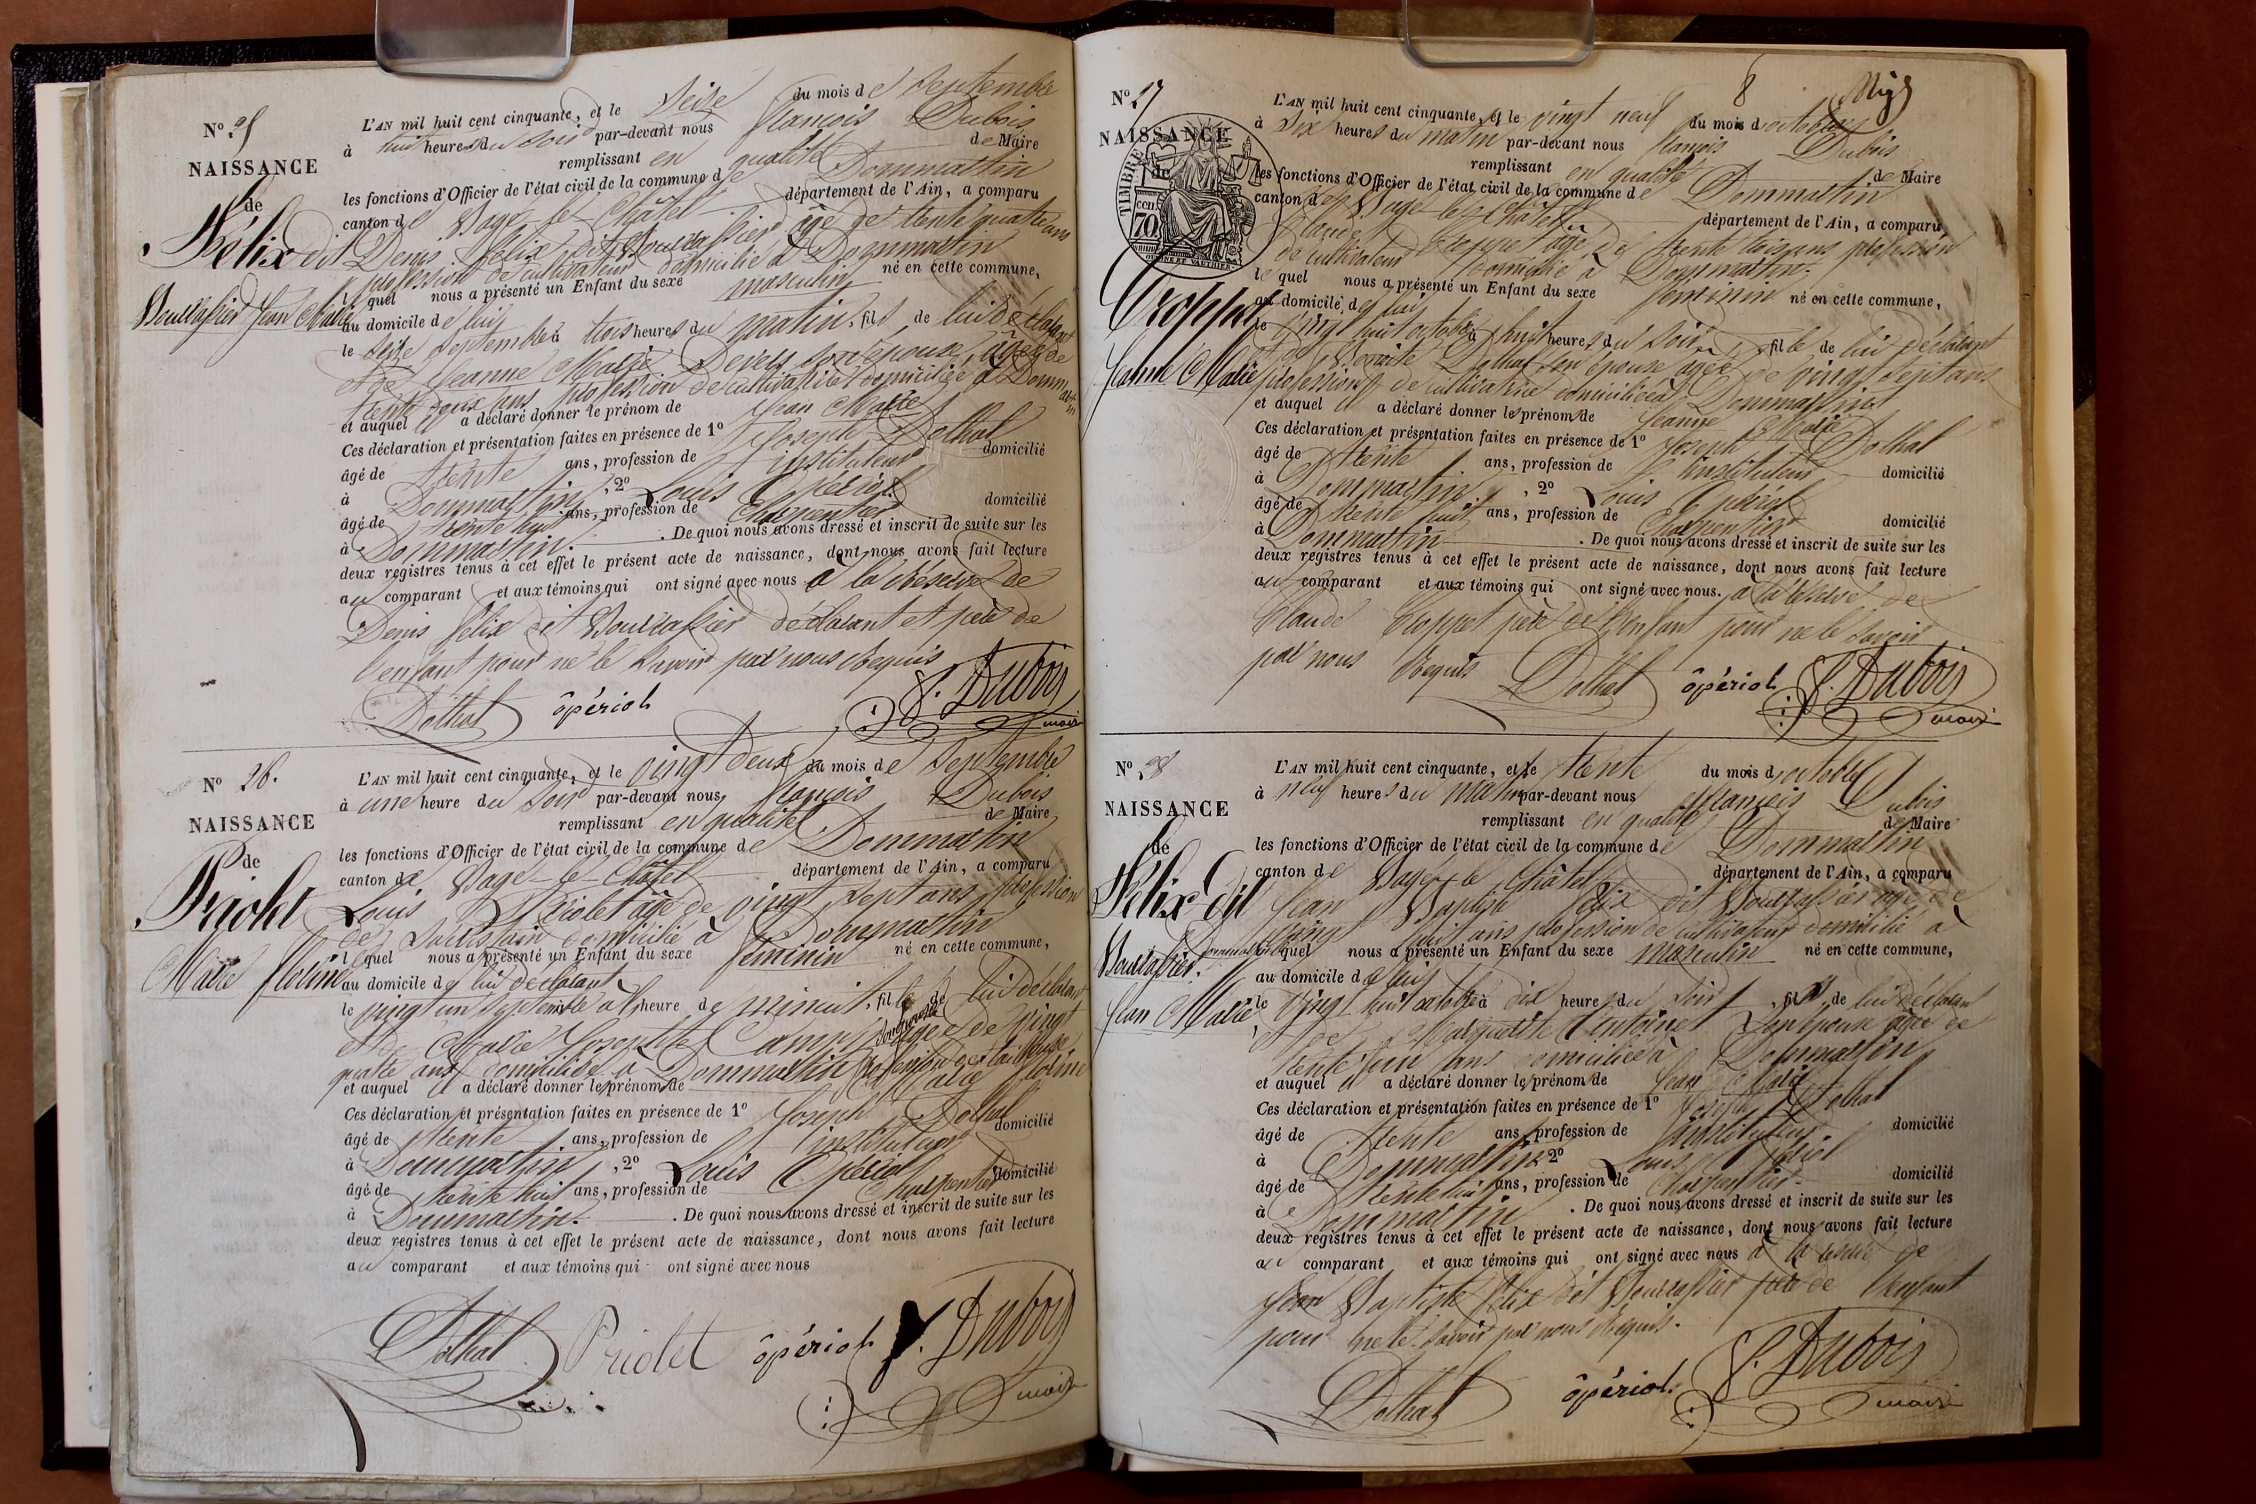 N° 25
NAISSANCE
de
Félix dit
Bourcassier Jean Marie
L'AN mil huit cent cinquante, et le seize du mois de septembre
à huit heures du soir par-devant nous François Dubois
remplissant en qualité de Maire
les fonctions d'Officier de l'état civil de la commune de Dommartin
canton de Bagé-le-Châtel département de l'Ain, a comparu
Denis Félix dit âgé de trente quatre ans
profession de cultivateur domicilié à Dommartin
quel nous a présenté un Enfant du sexe masculin né en cette commune,
au domicile de lui
le seize septembre à trois heures du matin, fils de lui déclarant
et de Jeanne Marie son épouse âgée de
trente deux ans profession de cultivatrice domiciliée à Dommartin
et auquel il a déclaré donner le prénom de Jean Marie
Ces déclaration et présentation faites en présence de 1° Joseph Dothal
âgé de trente ans, profession de instituteur domicilié
à Dommartin, 2° Louis Opériol
âgé de trente huit ans, profession de charpentier domicilié
à Dommartin. De quoi nous avons dressé et inscrit de suite sur les
deux registres tenus à cet effet le présent acte de naissance, dont nous avons fait lecture
au comparant et aux témoins qui ont signé avec nous à la réserve de
Denis Félix dit déclarant et père de
l'enfant pour ne le savoir par nous requis
Dothal opériol F. Dubois
maire
N° 26.
NAISSANCE
de
Priolet
Marie
L'AN mil huit cent cinquante, et le vingt deux du mois de septembre
à une heure du soir par-devant nous François Dubois
remplissant en qualité de Maire
les fonctions d'Officier de l'état civil de la commune de Dommartin
canton de Bagé-le-Châtel département de l'Ain, a comparu
Louis Priolet âgé de vingt sept ans profession
de sacristain domicilié à Dommartin
lequel nous a présenté un Enfant du sexe féminin né en cette commune,
au domicile de lui déclarant
le vingt un septembre à l'heure de minuit, fille de lui déclarant
et de Marie Josephte son épouse âgée de vingt
quatre ans domiciliée à Dommartin profession de tailleuse
et auquel il a déclaré donner le prénom de Marie
Ces déclaration et présentation faites en présence de 1° Joseph Dothal
âgé de trente ans, profession de instituteur domicilié
à Dommartin, 2° Louis Opériol
âgé de trente huit ans, profession de charpentier domicilié
à Dommartin. De quoi nous avons dressé et inscrit de suite sur les
deux registres tenus à cet effet le présent acte de naissance, dont nous avons fait lecture
au comparant et aux témoins qui ont signé avec nous
Dothal Priolet opériol F. Dubois
maire
8
N° 27
NAISSANCE
TIMBRE
de
cen
70
Croppet
Jeanne Marie
L'AN mil huit cent cinquante, et le vingt neuf du mois d'octobre
à six heures du matin par-devant nous François Dubois
remplissant en qualité de Maire
les fonctions d'Officier de l'état civil de la commune de Dommartin
canton de Bagé-le-Châtel département de l'Ain, a comparu
Claude Croppet âgé de trente trois ans profession
de cultivateur domicilié à Dommartin
le quel nous a présenté un Enfant du sexe féminin né en cette commune,
au domicile de lui
le vingt huit octobre à huit heures du soir, fille de lui déclarant
et de Dothal son épouse âgée de vingt sept ans
profession de cultivatrice domiciliée à Dommartin
et auquel il a déclaré donner le prénom de Jeanne Marie
Ces déclaration et présentation faites en présence de 1° Joseph Dothal
âgé de trente ans, profession de instituteur domicilié
à Dommartin, 2° Louis Opériol
âgé de trente huit ans, profession de charpentier domicilié
à Dommartin. De quoi nous avons dressé et inscrit de suite sur les
deux registres tenus à cet effet le présent acte de naissance, dont nous avons fait lecture
au comparant et aux témoins qui ont signé avec nous. à la réserve de
Claude Croppet père de l'enfant pour ne le savoir
par nous requis Dothal opériol F. Dubois
maire
N° 28
NAISSANCE
de
Félix dit
Bourcassier.
Jean Marie
L'AN mil huit cent cinquante, et le trente du mois d'octobre
à neuf heures du matin par-devant nous François Dubois
remplissant en qualité de Maire
les fonctions d'Officier de l'état civil de la commune de Dommartin
canton de Bagé-le-Châtel département de l'Ain, a comparu
Jean Baptiste Félix dit âgé de
vingt huit ans profession de cultivateur domicilié à
Dommartin lequel nous a présenté un Enfant du sexe masculin né en cette commune,
au domicile de lui
le vingt huit octobre à dix heures du soir, fils de lui déclarant
et de Marguerite son épouse âgée de
trente un ans domiciliée à Dommartin
et auquel il a déclaré donner le prénom de Jean Marie
Ces déclaration et présentation faites en présence de 1° Joseph Dothal
âgé de trente ans, profession de instituteur domicilié
à Dommartin 2° Louis Opériol
âgé de trente huit ans, profession de charpentier domicilié
à Dommartin. De quoi nous avons dressé et inscrit de suite sur les
deux registres tenus à cet effet le présent acte de naissance, dont nous avons fait lecture
au comparant et aux témoins qui ont signé avec nous à la réserve de
Jean Baptiste Félix dit père de l'enfant
pour ne le savoir par nous requis.
Dothal opériol. F. Dubois
maire